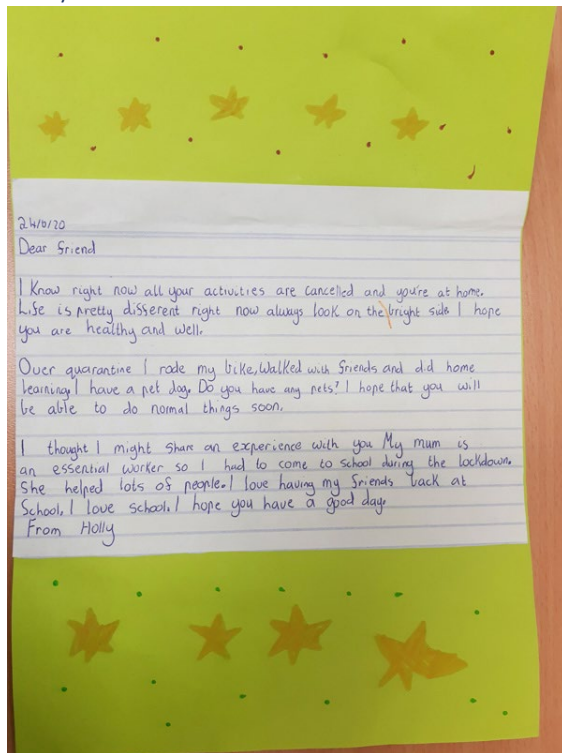 24/6/20
Dear friend
I Know right now all your activities are cancelled and you're at home.
Life is pretty different right now always look on the bright side I hope
you are healthy and well.
Over quarantine I rode my bike, Walked with friends and did home
learning. I have a pet dog. Do you have any pets? I hope that you will
be able to do normal things soon.
I thought I might share an experience with you My mum is
an essential worker so I had to come to school during the lockdown.
She helped lots of people. I love having my friends back at
School. I love school. I hope you have a good day.
From Holly